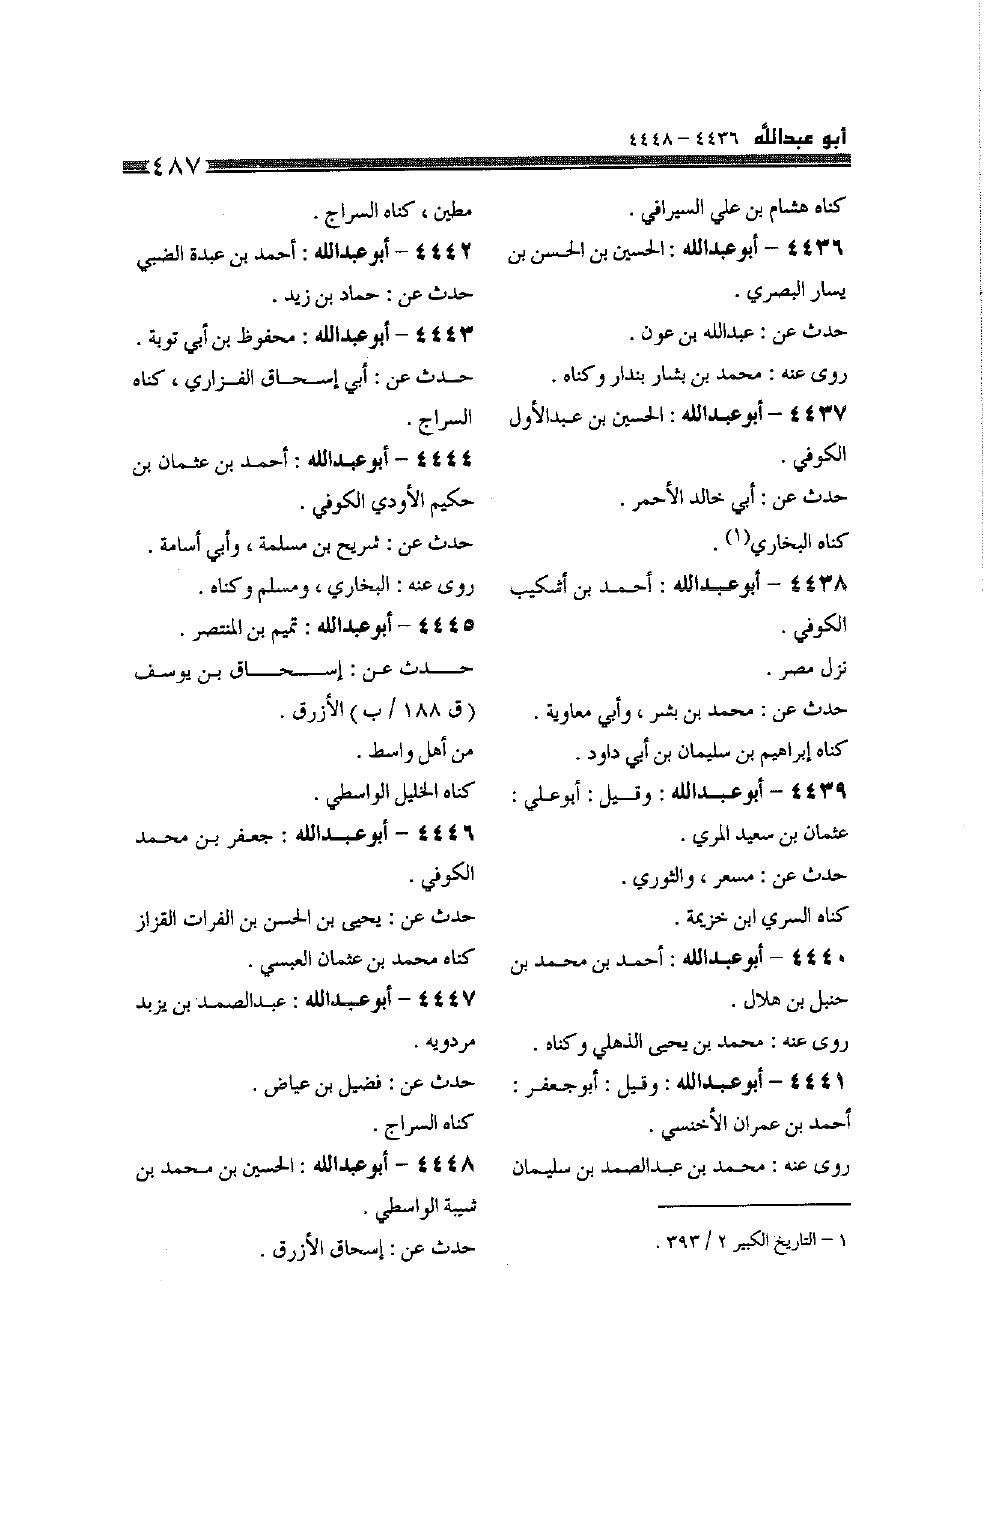 أبو عبدالله ٤٤٣٦ – ٤٤٤٨
٤٨٧
كناه هشام بن علي السيرافي .
٤٤٣٦ – أبوعبدالله : الحسين بن الحسن بن
يسار البصري .
حدث عن : عبدالله بن عون .
روى عنه : محمد بن بشار بندار وكناه .
٤٤٣٧ – أبوعبدالله : الحسين بن عبدالأول
الكوفي .
حدث عن : أبي خالد الأحمر .
كناه البخاري(١) .
٤٤٣٨ – أبوعبدالله : أحمد بن أشكيب
الكوفي .
نزل مصر .
حدث عن : محمد بن بشر ، وأبي معاوية .
كناه إبراهيم بن سليمان بن أبي داود .
٤٤٣٩ – أبوعبدالله : وقيل : أبوعلي :
عثمان بن سعيد المري .
حدث عن : مسعر ، والثوري .
كناه السري ابن خزيمة .
٤٤٤٠ – أبوعبدالله : أحمد بن محمد بن
حنبل بن هلال .
روى عنه : محمد بن يحيى الذهلي وكناه .
٤٤٤١ – أبوعبدالله : وقيل : أبوجعفر :
أحمد بن عمران الأخنسي .
روى عنه : محمد بن عبدالصمد بن سليمان
١ – التاريخ الكبير ٢ / ٣٩٣ .
مطين ، كناه السراج .
٤٤٤٢ – أبوعبدالله : أحمد بن عبدة الضبي
حدث عن : حماد بن زيد .
٤٤٤٣ – أبوعبدالله : محفوظ بن أبي توبة .
حدث عن : أبي إسحاق الفزاري ، كناه
السراج .
٤٤٤٤ – أبوعبدالله : أحمد بن عثمان بن
حكيم الأودي الكوفي .
حدث عن : شريح بن مسلمة ، وأبي أسامة .
روى عنه : البخاري ، ومسلم وكناه .
٤٤٤٥ – أبوعبدالله : تميم بن المنتصر .
حدث عن : إسحاق بن يوسف
( ق ١٨٨ / ب ) الأزرق .
من أهل واسط .
كناه الخليل الواسطي .
٤٤٤٦ – أبوعبدالله : جعفر بن محمد
الكوفي .
حدث عن : يحيى بن الحسن بن الفرات القزاز
كناه محمد بن عثمان العبسي .
٤٤٤٧ – أبوعبدالله : عبدالصمد بن يزيد
مردويه .
حدث عن : فضيل بن عياض .
كناه السراج .
٤٤٤٨ – أبوعبدالله : الحسين بن محمد بن
شيبة الواسطي .
حدث عن : إسحاق الأزرق .